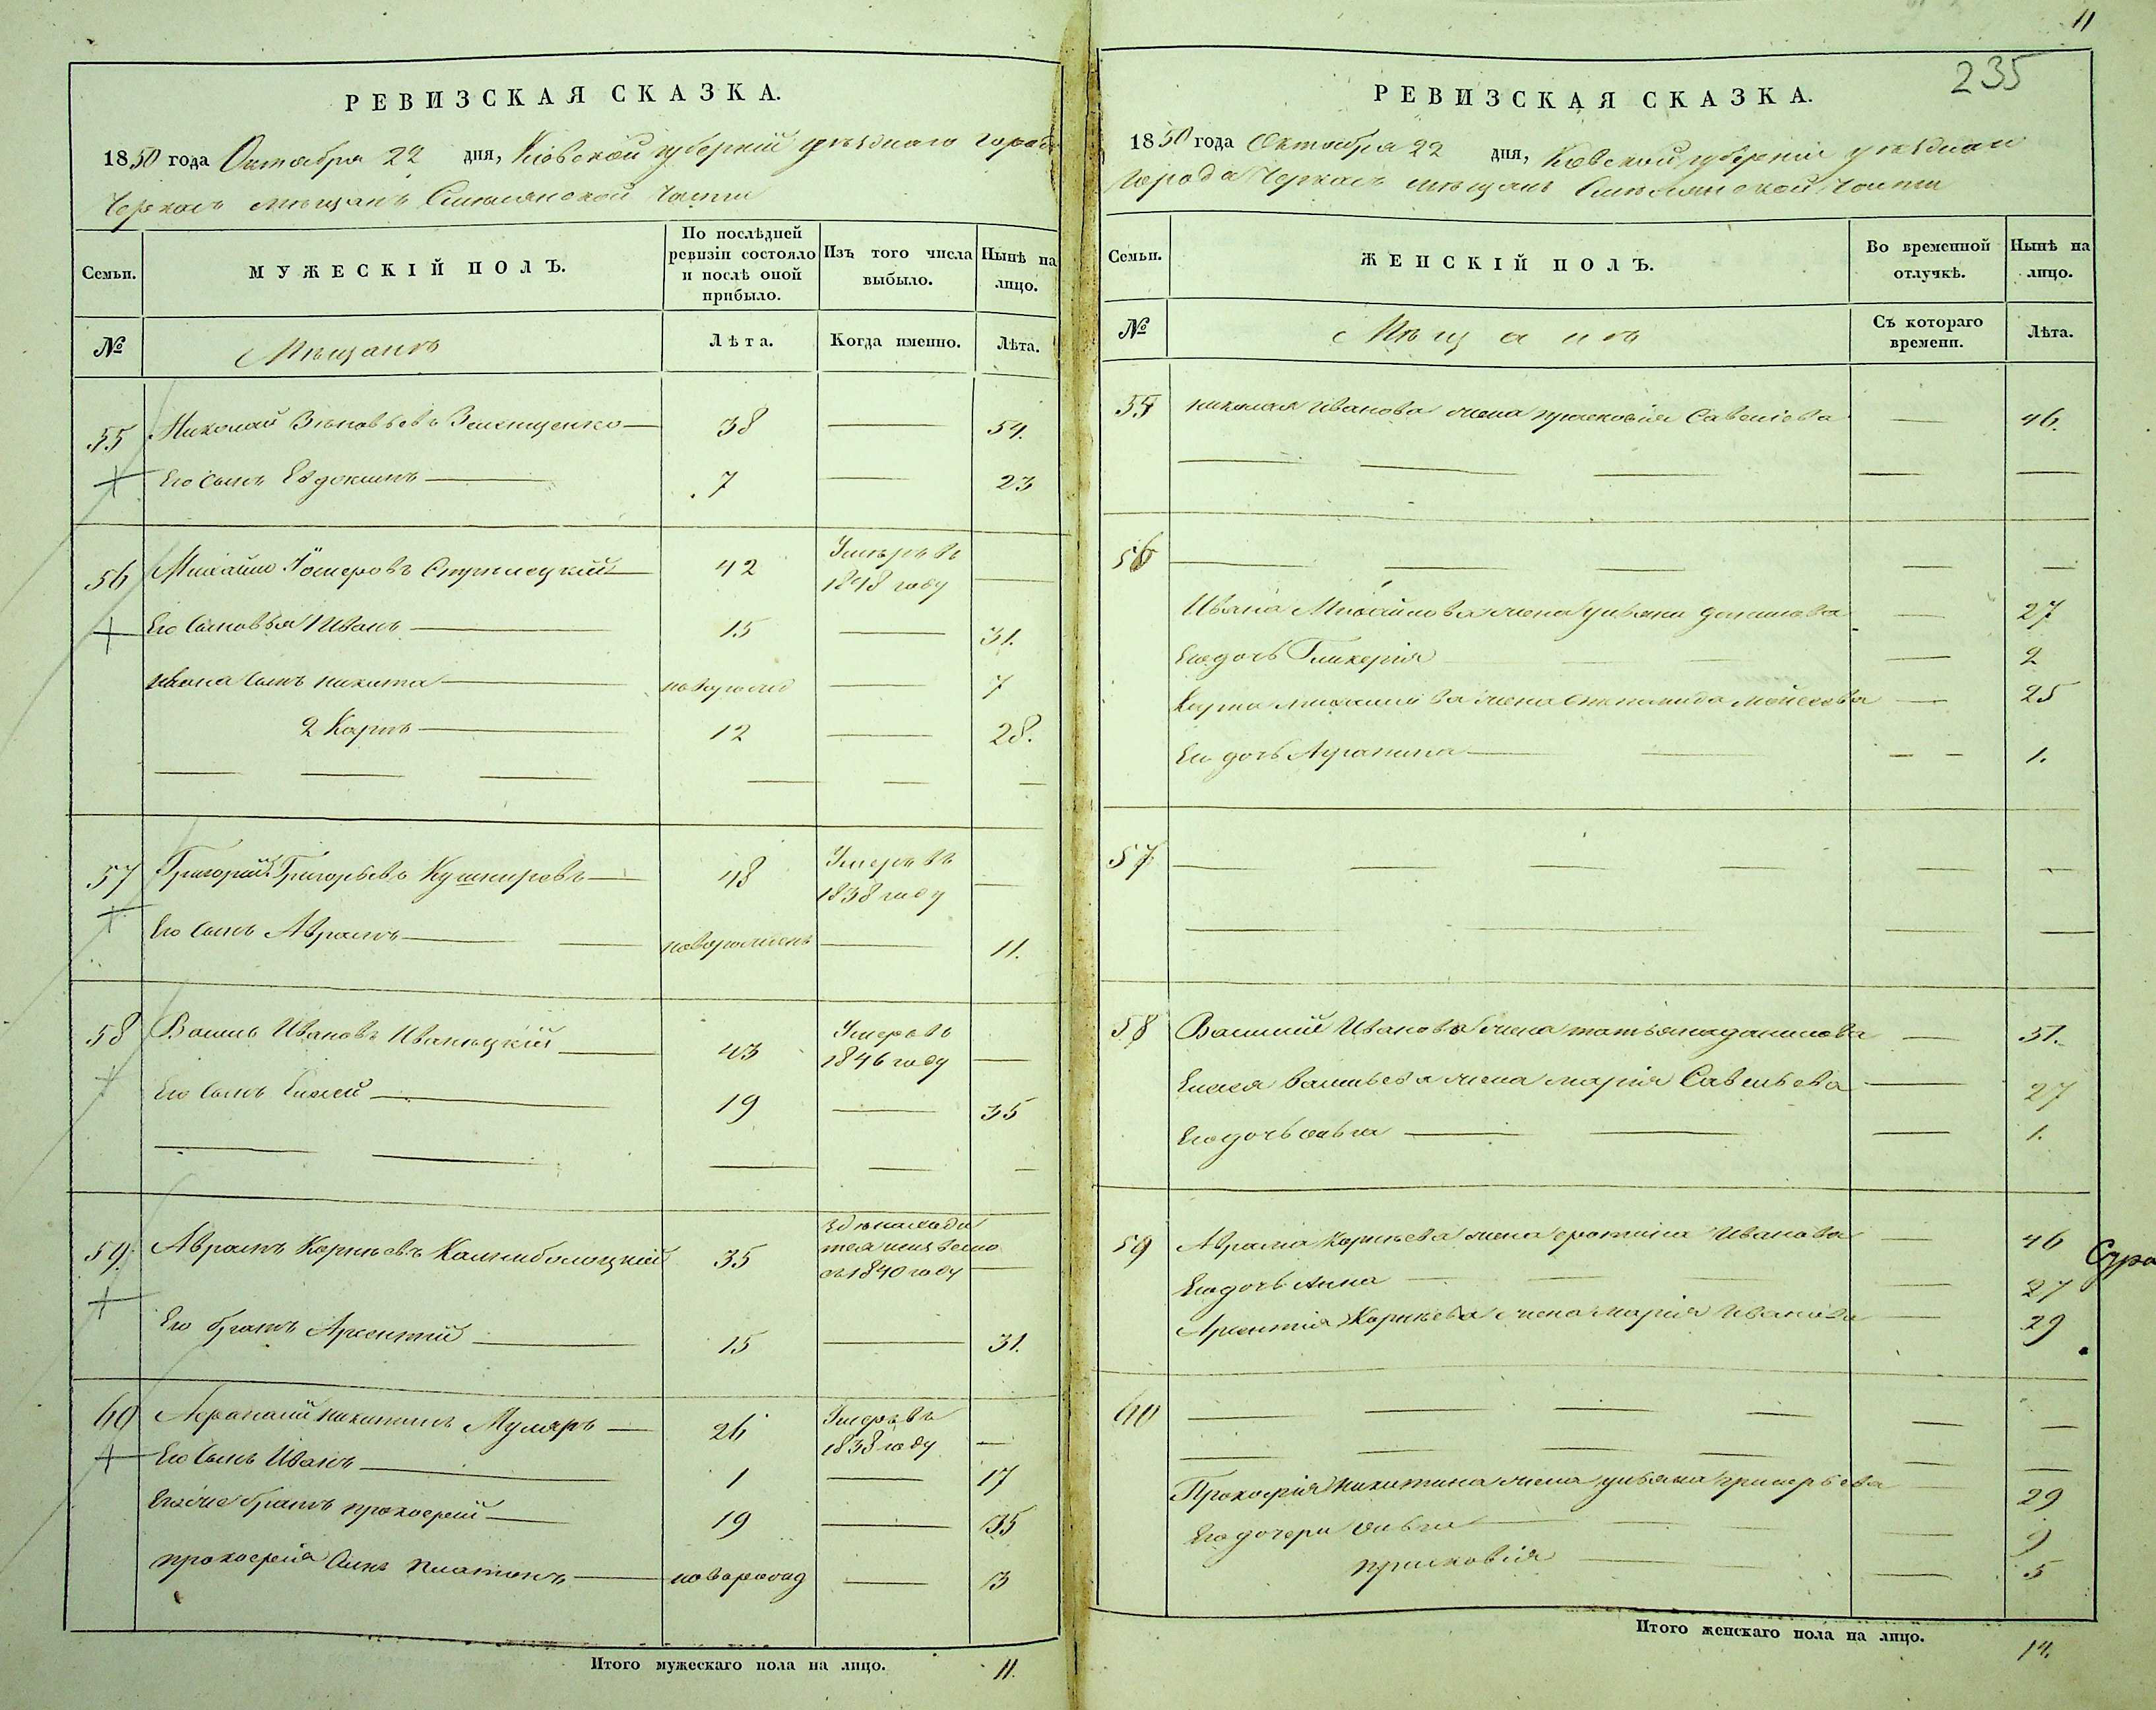 РЕВИЗСКАЯ СКАЗКА.
1850 года Октября 22 дня, Кіевской губерніи уѣзднаго города
Черкасъ мѣщанъ Смѣлянской части
Семьи. МУЖЕСКІЙ ПОЛЪ. По послѣдней ревизіи состояло и послѣ оной прибыло. Изъ того числа выбыло. Нынѣ на лицо.
№ Мѣщанъ Лѣта. Когда именно. Лѣта.
55 Николай Зѣновьевъ — 38 — 54.
Его сынъ Евдокимъ — 7 — 23
56 Михайло 42 Умеръ въ 1848 году —
Его сыновья 1 Иванъ — 15 — 31.
Ивана сынъ никита — новорожд — 7
2 Карпъ — 12 — 28.
57 Григорій Григорьевъ Кушнировъ — 48 Умеръ въ 1838 году —
Его сынъ Аврамъ — новорожденъ — 11.
58 Василь Ивановъ Иваницкій — 43 Умеръ въ 1846 году —
Его сынъ Елисей — 19 — 35
59. Аврамъ Корнѣевъ 35 въ 1840 году —
Его братъ Арсентій — 15 — 31.
60 Афанасій никитинъ Муляръ — 26 Умеръ въ 1838 году —
Его сынъ Иванъ — 1 — 17
братъ прокофій — 19 — 35
прокофія сынъ Платонъ — новорожд — 13
Итого мужескаго пола на лицо. 11.
11
235
РЕВИЗСКАЯ СКАЗКА.
1850 года Октября 22 дня, Кіевской губерніи уѣзднаго
Города Черкасъ мѣщанъ Смѣлянской части
Семьи. ЖЕНСКІЙ ПОЛЪ. Во временной отлучкѣ. Нынѣ на лицо.
№ Мѣщанъ Съ котораго времени. Лѣта.
55 николая Иванова жена прасковія Савеліева — 46.
56 — — — — —
Ивана Михайлова жена ульяна данилова — 27
Его дочь Гликерія — 2
Карпа михайлова жена степанида мойсеева — 25
Его дочь — 1.
57 — — — — — —
58 Василія Иванова жена татьяна данилова — 51.
Елисея васильева жена марія Савельева — 27
Его дочь ольга — 1.
59 Аврама Корнѣева жена Иванова — 46
Его дочь анна — 27
Арсентія Корнѣева жена марія Иванова — 29
60 — — — — — —
Прокофія никитина жена ульяна григорьева — 29
Его дочери ольга — 9
прасковія — 5
Итого женскаго пола на лицо. 14.